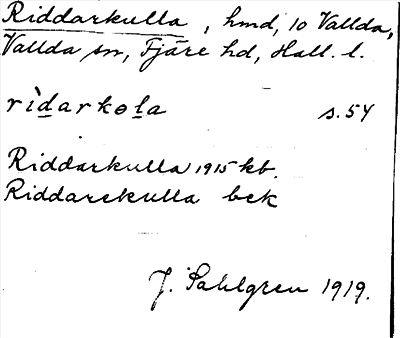 Riddarkulla, hmd, 10 Vallda,
Vallda sn, Fjäre hd, Hall. l.
rìdarkola s. 54
Riddarkulla 1915 kb.
Riddarekulla bek
J. Sahlgren 1919.